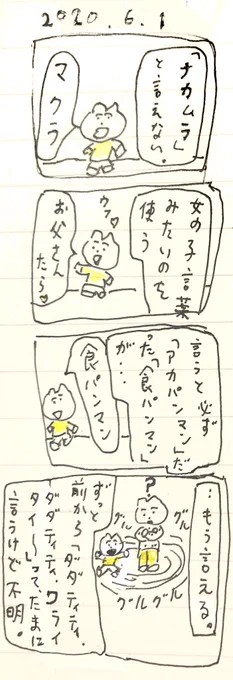 2020.6.1
「ナカムラ」
と言えない。
マクラ
女の子言葉
みたいのを
使う
ウフ♡
お父さん
たら♡
言うと必ず
「アカパンマン」だ
った「食パンマン」
が…
食パンマン
…もう言える。
?
グル
グル
グル
グル
ずっと
前から「ダダティティ、
ダダティティ、ワライ
タイ〜」ってたまに
言うけど不明。